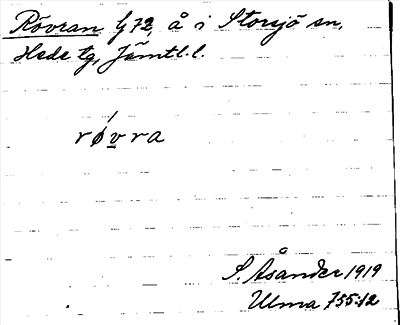 Rövran G 72, å i Storsjö sn,
Hede tg, Jämtl. l.
rǿvra
S. Åsander 1919
Ulma 755:12